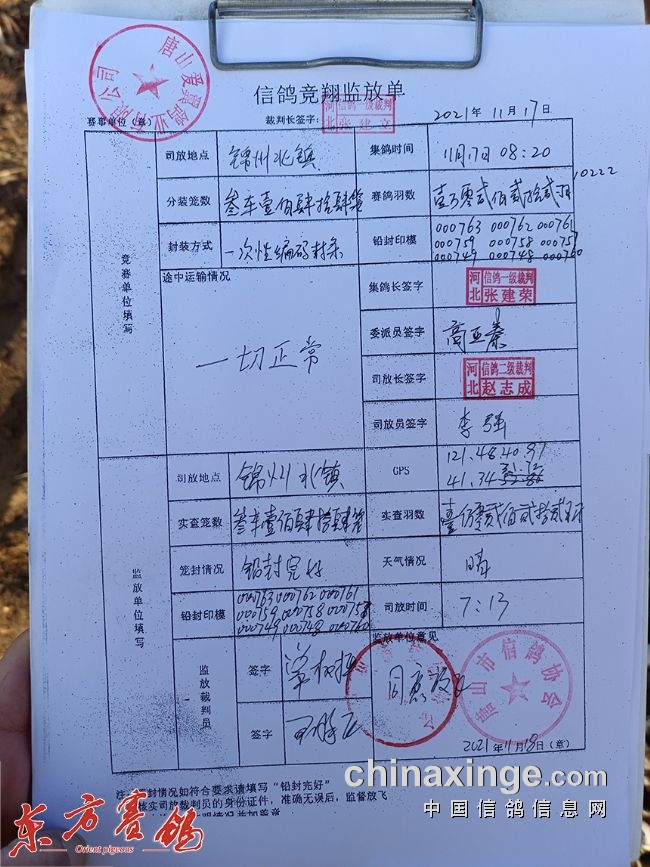 信鸽竞翔监放单
赛事单位（章）
裁判长签字：
河北 信鸽一级裁判 张建立
2021年11月17日
竞赛单位填写
司放地点 锦州北镇 集鸽时间 11月17日 08:20
分装笼数 叁车壹佰肆拾肆笼 赛鸽羽数 壹万零贰佰贰拾贰羽 10222
封装方式 一次性编码封条 铅封印模 000763 000762 000761
000759 000758 000757
000749 000748 000760
途中运输情况
一切正常
集鸽长签字 河北 信鸽一级裁判 张建荣
委派员签字
司放长签字 河北 信鸽二级裁判 赵志成
司放员签字 李强
监放单位填写
司放地点 锦州北镇 GPS 121.48.40.97
41.34
实查笼数 叁车壹佰肆拾肆笼 实查羽数
笼封情况 铅封完好 天气情况 晴
铅封印模 000763 000762 000761
000759 000758 000757
000749 000748 000760
司放时间 7:13
监放裁判员 签字
签字
监放单位意见
同意放飞
唐山市信鸽协会
2021年11月18日（章）
封情况如符合要求请填写“铅封完好”
核实司放裁判员的身份证件，准确无误后，监督放飞
东方赛鸽
Orient pigeons
chinaxinge.com
中国信鸽信息网